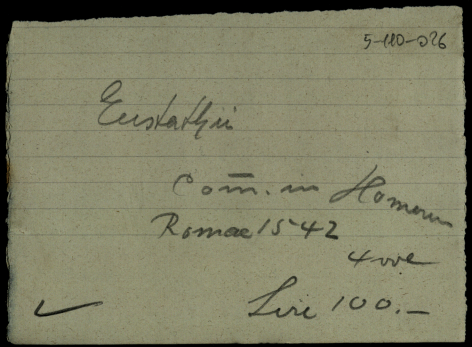 5-110-026
Eustathii
Com̅. in Homerum
Romae 1542
4 vol
Lire 100.—